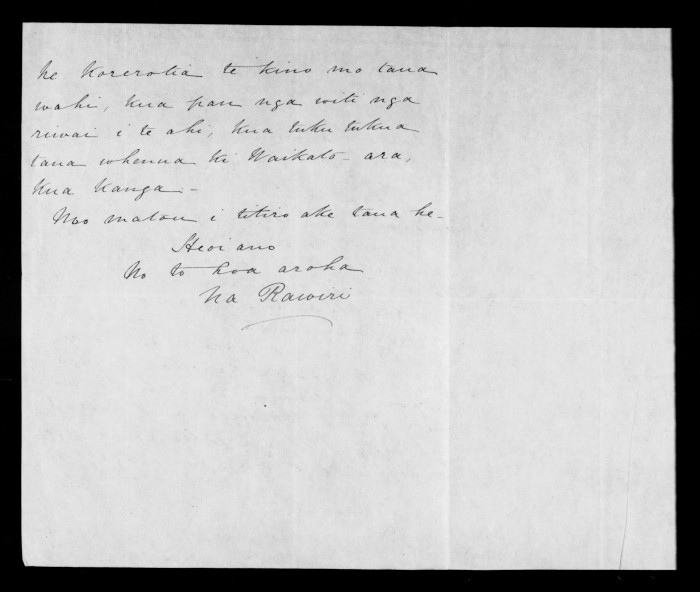 ke korerotia te kino mo tana
wahi, kua pau nga witi nga
riwai i te ahi, kua tuku tukua
tana whenua ki Waikato - ara,
kua kanga -
Noo matou i titiro ake tana he -
Heoi ano
No to hoa aroha
Na Rawiri